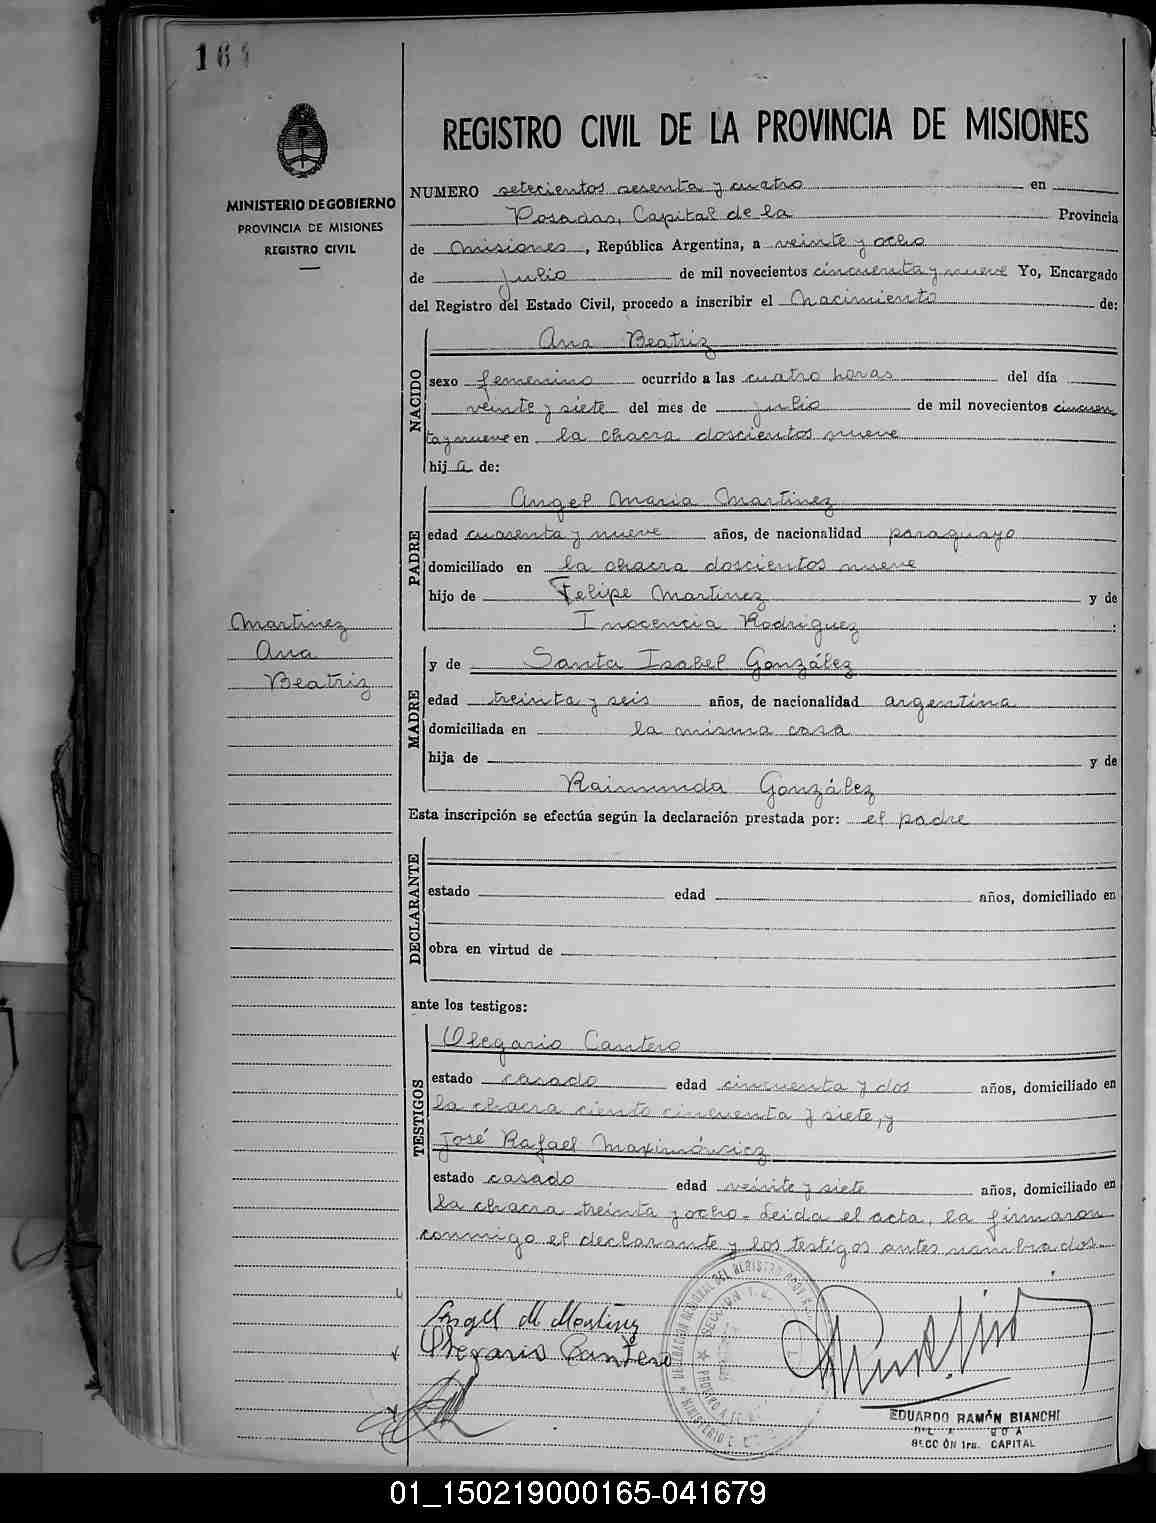 164
MINISTERIO DE GOBIERNO
PROVINCIA DE MISIONES
REGISTRO CIVIL
Martinez
Ana
Beatriz
REGISTRO CIVIL DE LA PROVINCIA DE MISIONES
NUMERO setecientos sesenta y cuatro en
Posadas, Capital de la Provincia
de Misiones, República Argentina, a veinte y ocho
de Julio de mil novecientos cincuenta y nueve Yo, Encargado
del Registro del Estado Civil, procedo a inscribir el Nacimiento de:
NACIDO
Ana Beatriz
sexo femenino ocurrido a las cuatro horas del día
veinte y siete del mes de julio de mil novecientos cincuen
ta y nueve en la chacra doscientos nueve
hij a de:
PADRE
Angel Maria Martinez
edad cuarenta y nueve años, de nacionalidad paraguayo
domiciliado en la chacra doscientos nueve
hijo de Felipe Martinez y de
Inocencia Rodriguez :
MADRE
y de Santa Isabel González
edad treinta y seis años, de nacionalidad argentina
domiciliada en la misma casa
hija de y de
Raimunda González
Esta inscripción se efectúa según la declaración prestada por: el padre
DECLARANTE
estado edad años, domiciliado en
obra en virtud de
ante los testigos:
TESTIGOS
Olegario Cantero
estado casado edad cincuenta y dos años, domiciliado en
la chacra ciento cincuenta y siete, y
José Rafael Maximówicz
estado casado edad veinte y siete años, domiciliado en
la chacra treinta y ocho. Leida el acta, la firmaron
conmigo el declarante y los testigos antes nombrados.
Angel M Martinez
Olegario Cantero
EDUARDO RAMÓN BIANCHI
SECCIÓN 1ra. CAPITAL
01_150219000165-041679